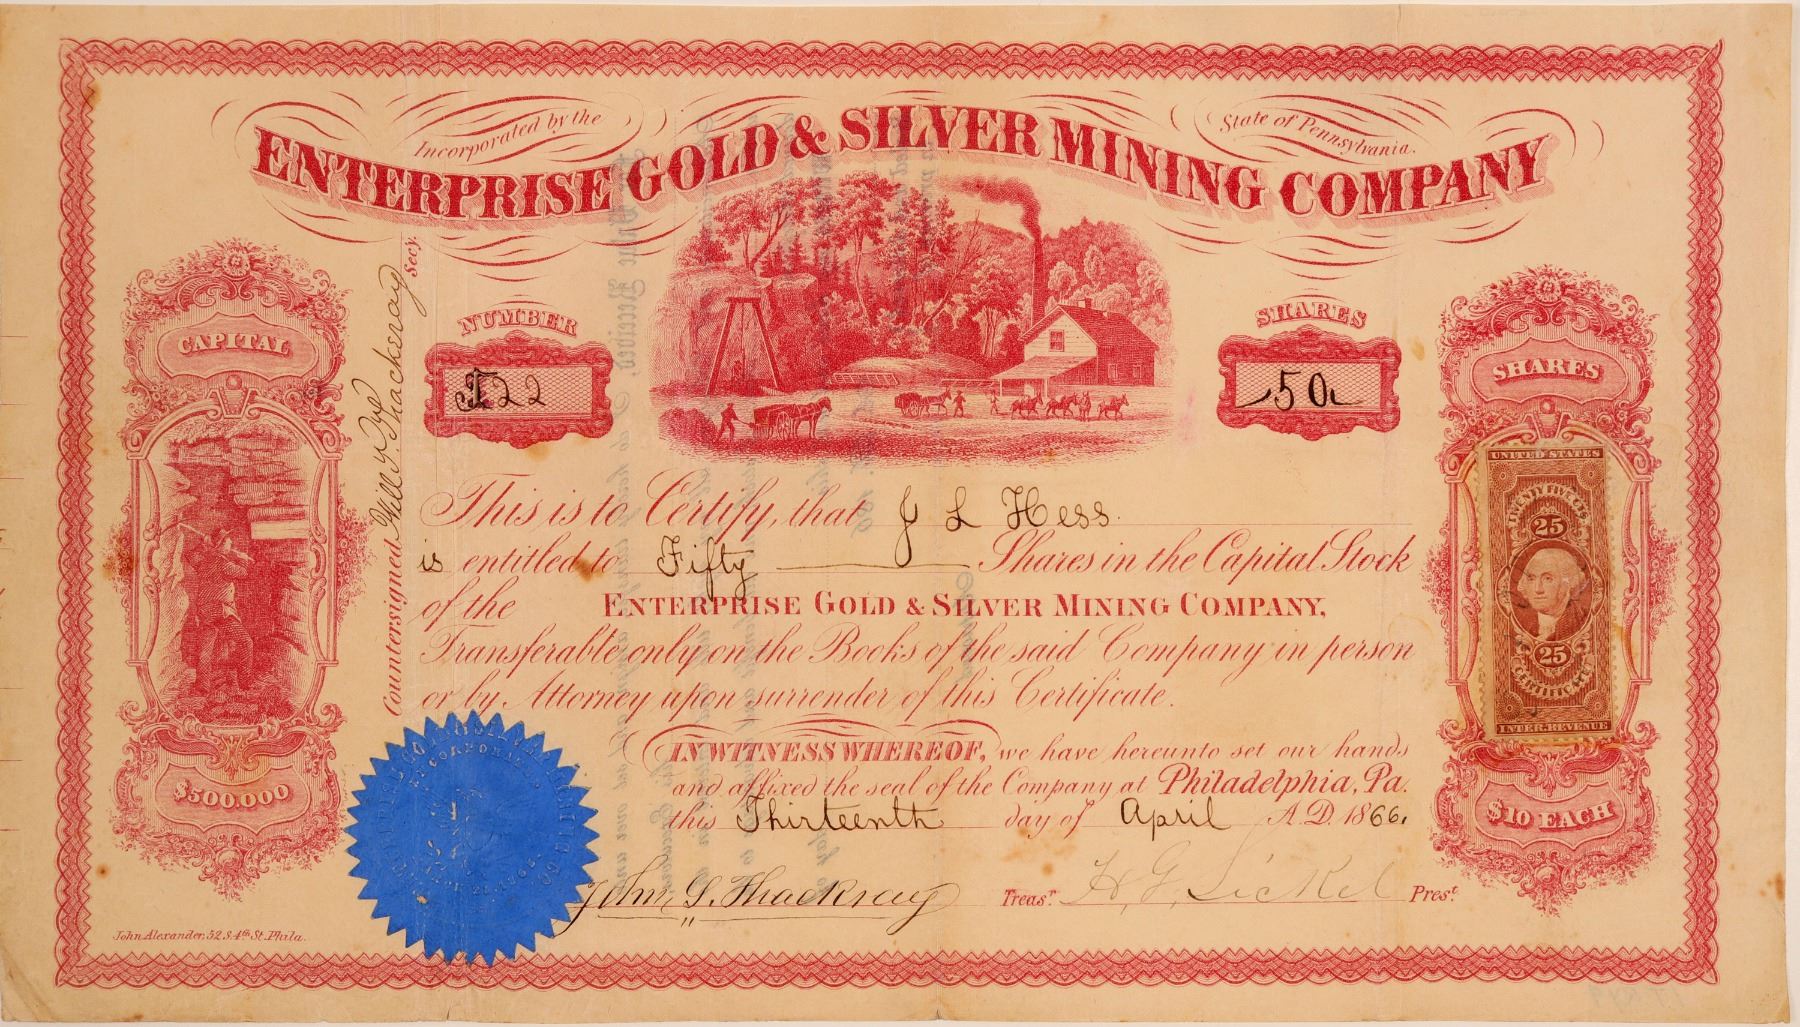 Incorporated by the
State of Pennsylvania.
ENTERPRISE GOLD & SILVER MINING COMPANY
NUMBER
122
SHARES
50
CAPITAL
$500.000
SHARES
$10 EACH
UNITED STATES
TWENTY FIVE CTS.
25
25
CERTIFICATE
INTER. REVENUE
Countersigned Will V. Thackeray Secy.
This is to Certify, that J L Hess.
is entitled to Fifty Shares in the Capital Stock
of the ENTERPRISE GOLD & SILVER MINING COMPANY,
Transferable only on the Books of the said Company in person
or by Attorney upon surrender of this Certificate.
IN WITNESS WHEREOF, we have hereunto set our hands
and affixed the seal of the Company at Philadelphia, Pa.
this Thirteenth day of April A.D. 1866.
John G. Thackray Treasr. H. G. Sickel Prest.
John Alexander, 52 S. 4th St. Phila.